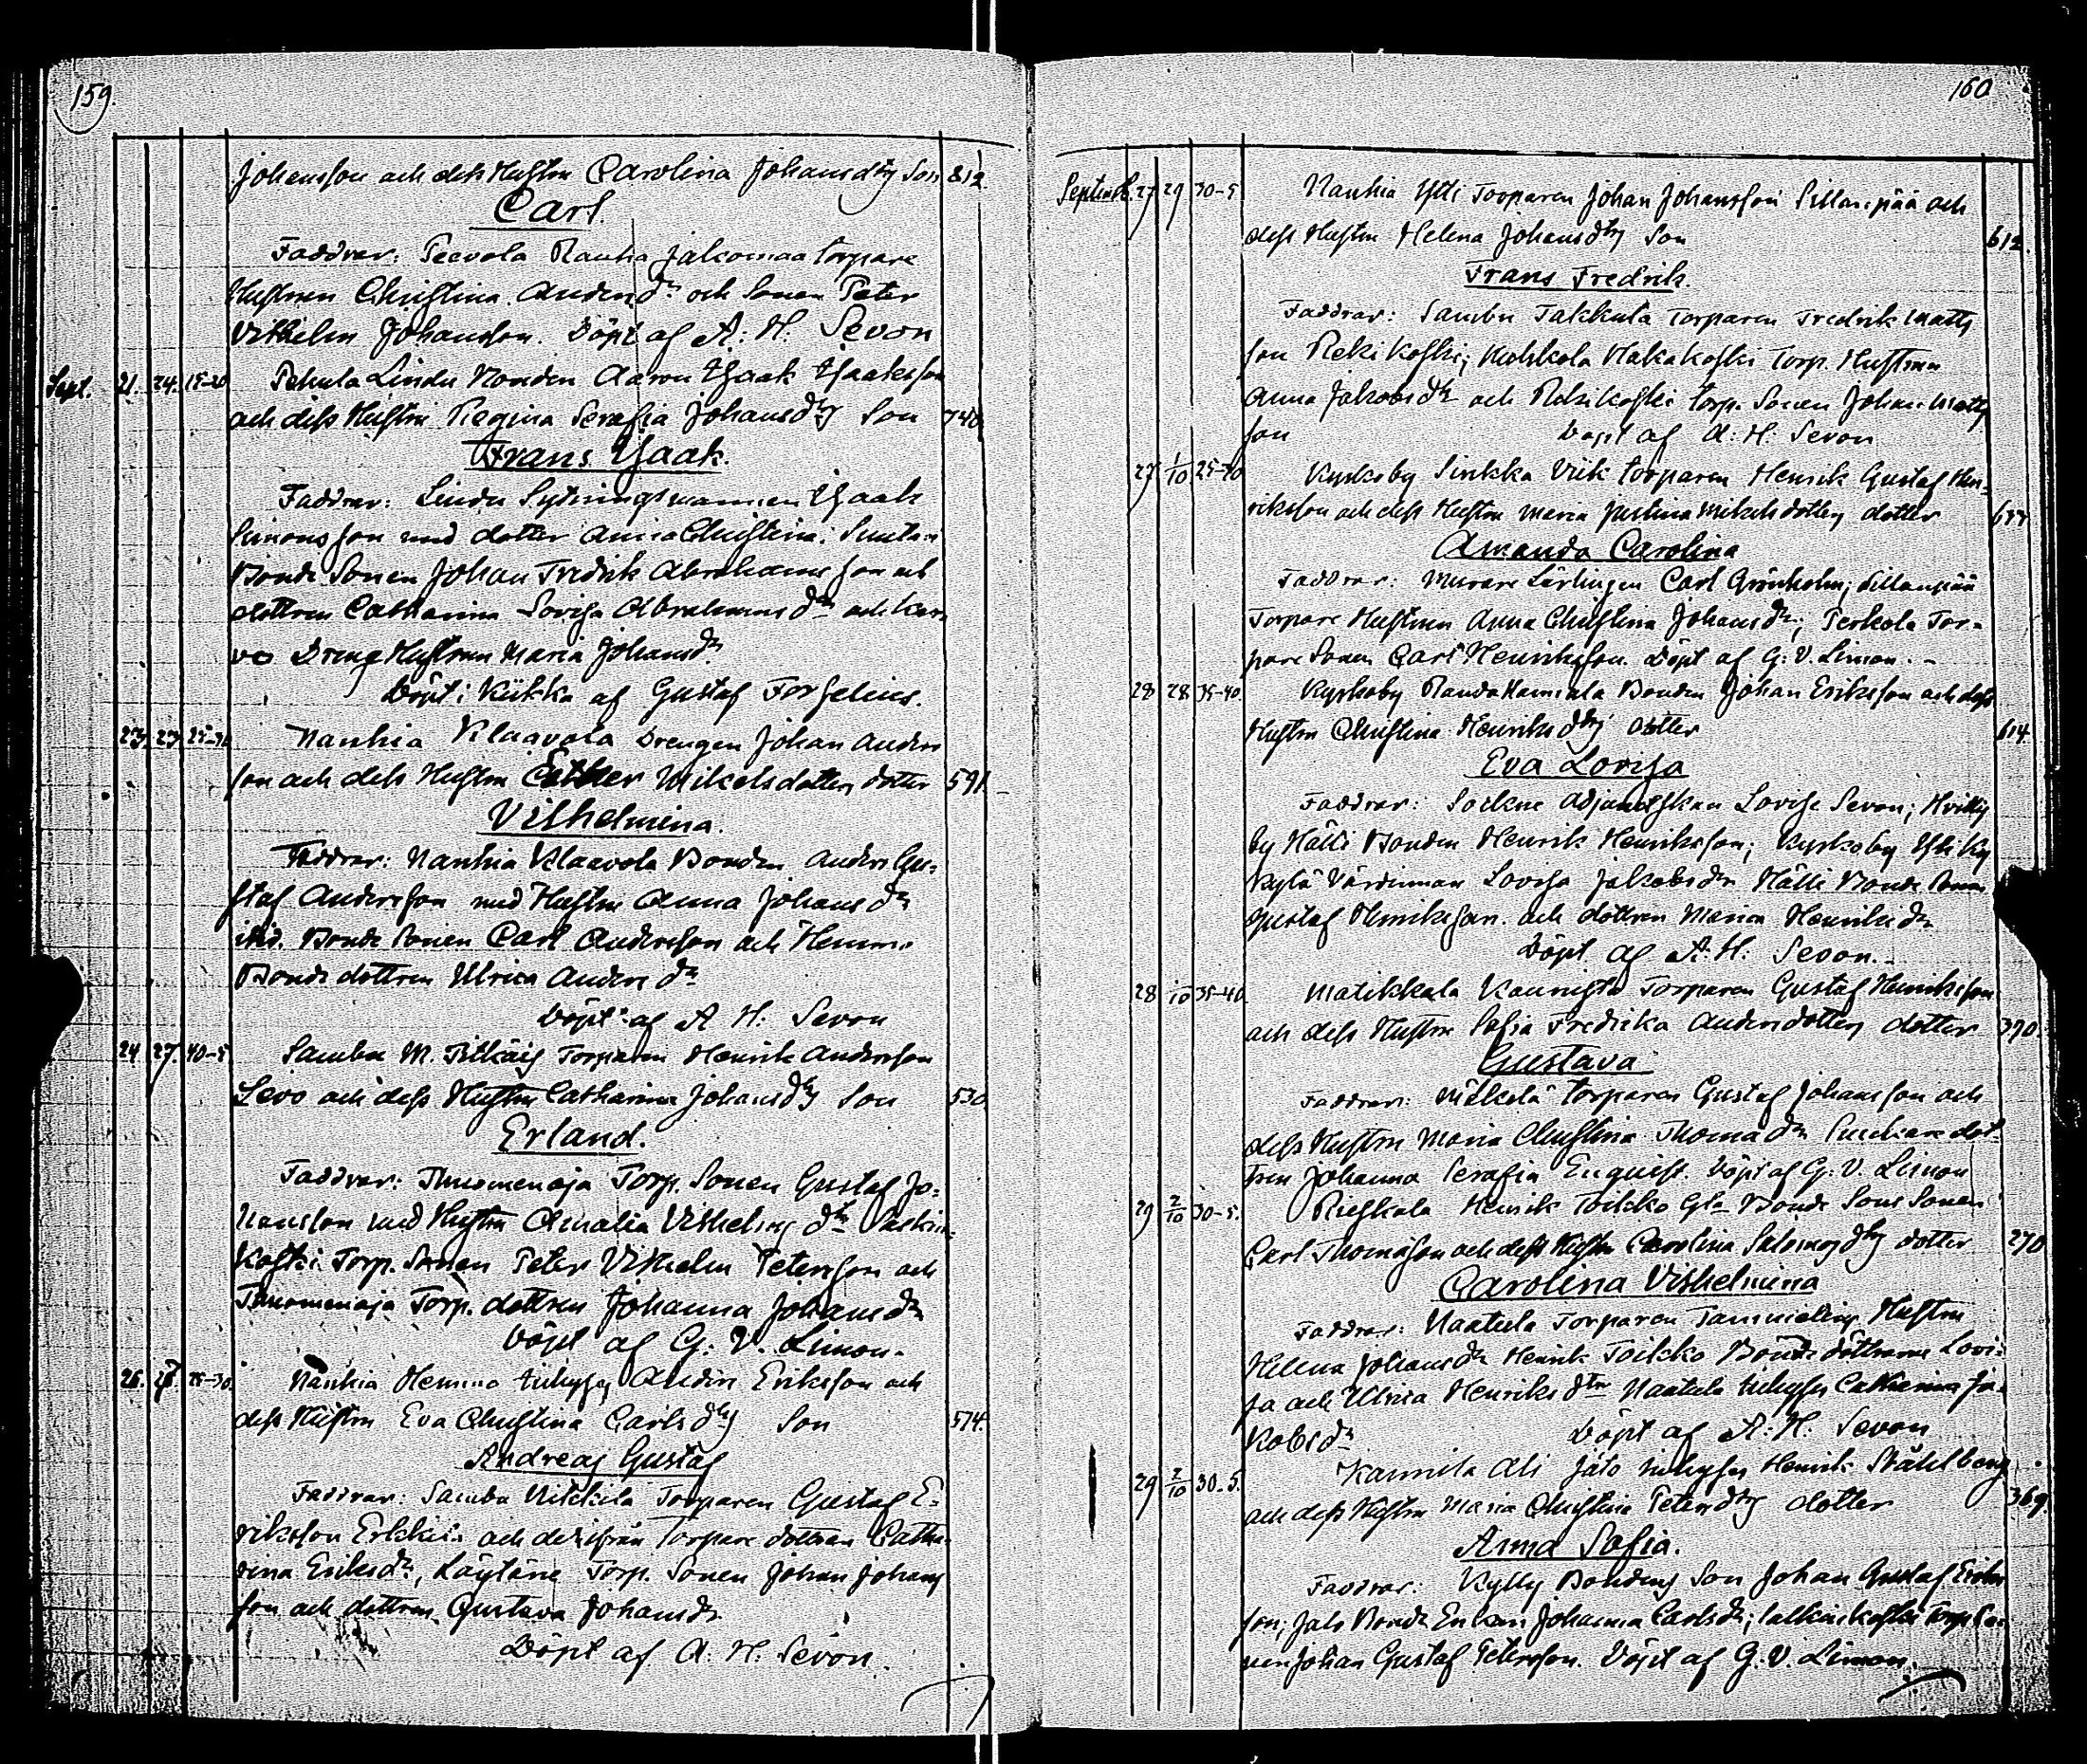 159.
Johansson och dess Hustru Carolina Johansdtrs Son 812.
Carl.
Faddrar: Peevola Rauha Jakomaa torpare
Hustrun Christina Andersdr och Sonen Peter
Vilhelm Johansson. Döpt af A: H. Sevon
Sept. 21. 24. 15-20 Pehula Lindu Bonden Aaron Isaak Isaaksson
och dess Hustru Regina Serafia Johansdtrs Son 740
Frans Isaak.
Faddrar: Lindu Sytningsmannen Isaak
Simonsson med dotter Anna Christina;
Bonde Sonen Johan Fredrik Abrahamsson och
dottren Catharina Lovisa Abrahamsdr och Kar-
vo Dreng Hustrun Maria Johansdr.
Döpt i Kiikka af Gustaf Forselius.
23. 23. 25-30 Nanhia Klaavola Drengen Johan Anders
son och dess Hustru Esther Mikelsdotters dotter 591.
Vilhelmina.
Faddrar: Nanhia Klaavola Bonden Anders Gu-
staf Andersson med Hustru Anna Johansdr
ibid. Bonde Sonen Carl Andersson och Hemmo
Bonde dottren Ulrica Andersdr
Döpt af A H: Sevon
24. 27. 40-5 Sambu M. Pitkäis Torparen Henrik Andersson
Levo och dess Hustru Catharina Johansdtrs Son 530.
Erland.
Faddrar: Tuomenoja Torp. Sonen Gustaf Jo-
hansson med Hustru Amalia Vilhelmsdr
Koski Torp. Sonen Peter Vilhelm Petersson och
Tuomenoja Torp. dottren Johanna Johansdr
Döpt af G: V. Limon.
26. 28. 25-30. Nanhia Hemmo inhyses Anders Eriksson och
dess Hustru Eva Christina Carlsdtrs Son 574.
Andreas Gustaf
Faddrar: Sambu Uikkila Torparen Gustaf E-
riksson Erkkilä och derifrån Torpare dottren Catha-
rina Eriksdr, Käytäne Torp. Sonen Johan Johans
son och dottren Gustava Johansdr.
Döpt af A. H. Sevon.
160
Septemb. 27 29 30-5 Nanhia Yli Torparen Johan Johansson Sillanpää och
dess Hustru Helena Johansdtrs Son 612.
Frans Fredrik.
Faddrar: Sambu Takkula Torparen Fredrik Matts
son Rekikoski; Hakakoski Torp. Hustrun
Anna Jakobsdr och Rekikoski torp. Sonen Johan Matts
son Döpt af A: H: Sevon
27 1/10 25-30 Kyrkoby Sinkka Viik torparen Henrik Gustaf Hen-
riksson och dess Hustru Maria Justina Mikelsdotters dotter
Amanda Carolina
Faddrar: Murare Lärlingen Carl Grönholm; Sillanpää
Torpare Hustrun Anna Christina Johansdr; Perkola Tor-
pare Sonen Carl Henriksson. Döpt af G: V. Limon.-
28 28 35-40. Kyrkoby Bonden Johan Eriksson och dess
Hustru Christina Henriksdtrs dotter 614.
Eva Lovisa
Faddrar: Sockne Adjunctskan Lovise Sevon;
by Hälli Bonden Henrik Henriksson; Kyrkoby
Kylä Värdinnan Lovisa Jakobsdr Hälli Bonde Sonen
Gustaf Henriksson och dottren Maria Henriksdr
Döpt af A: H: Sevon.-
28 1/10 35-40. Matikkala Kaunista Torparen Gustaf Henriksson
och dess Hustru Sofia Fredrika Andersdotters dotter 390.
Gustava
Faddrar: Mäkelä torparen Gustaf Johansson och
dess Hustru Maria Christina Thomasdr dot-
tren Johanna Serafia Enquist. Döpt af G: V. Limon
29 2/10 30-5. Rieskala Henrik Toikko Gla Bonde Sons Sonen
Carl Thomasson och dess Hustru Carolina Salomonsdtrs dotter 270
Carolina Vilhelmina
Faddrar: Naatula Torparen Hustru
Helena Johansdr Henrik Toikko Bonde döttrarna Lovi-
sa och Ulrica Henriksdtr Naatula inhyses Catharina Ja-
kobsdr Döpt af A: H. Sevon
29 2/10 30-5. Karnila Ali Jato inhyses Henrik Ståhlberg
och dess Hustru Maria Christina Petersdtrs dotter 369.
Anna Sofia.
Faddrar: Kylly Bondens Son Johan Gustaf Eriks
son; Jato Bonde Enkan Johanna Carlsdr; Torp So-
nen Johan Gustaf Petersson. Döpt af G. V. Limon.